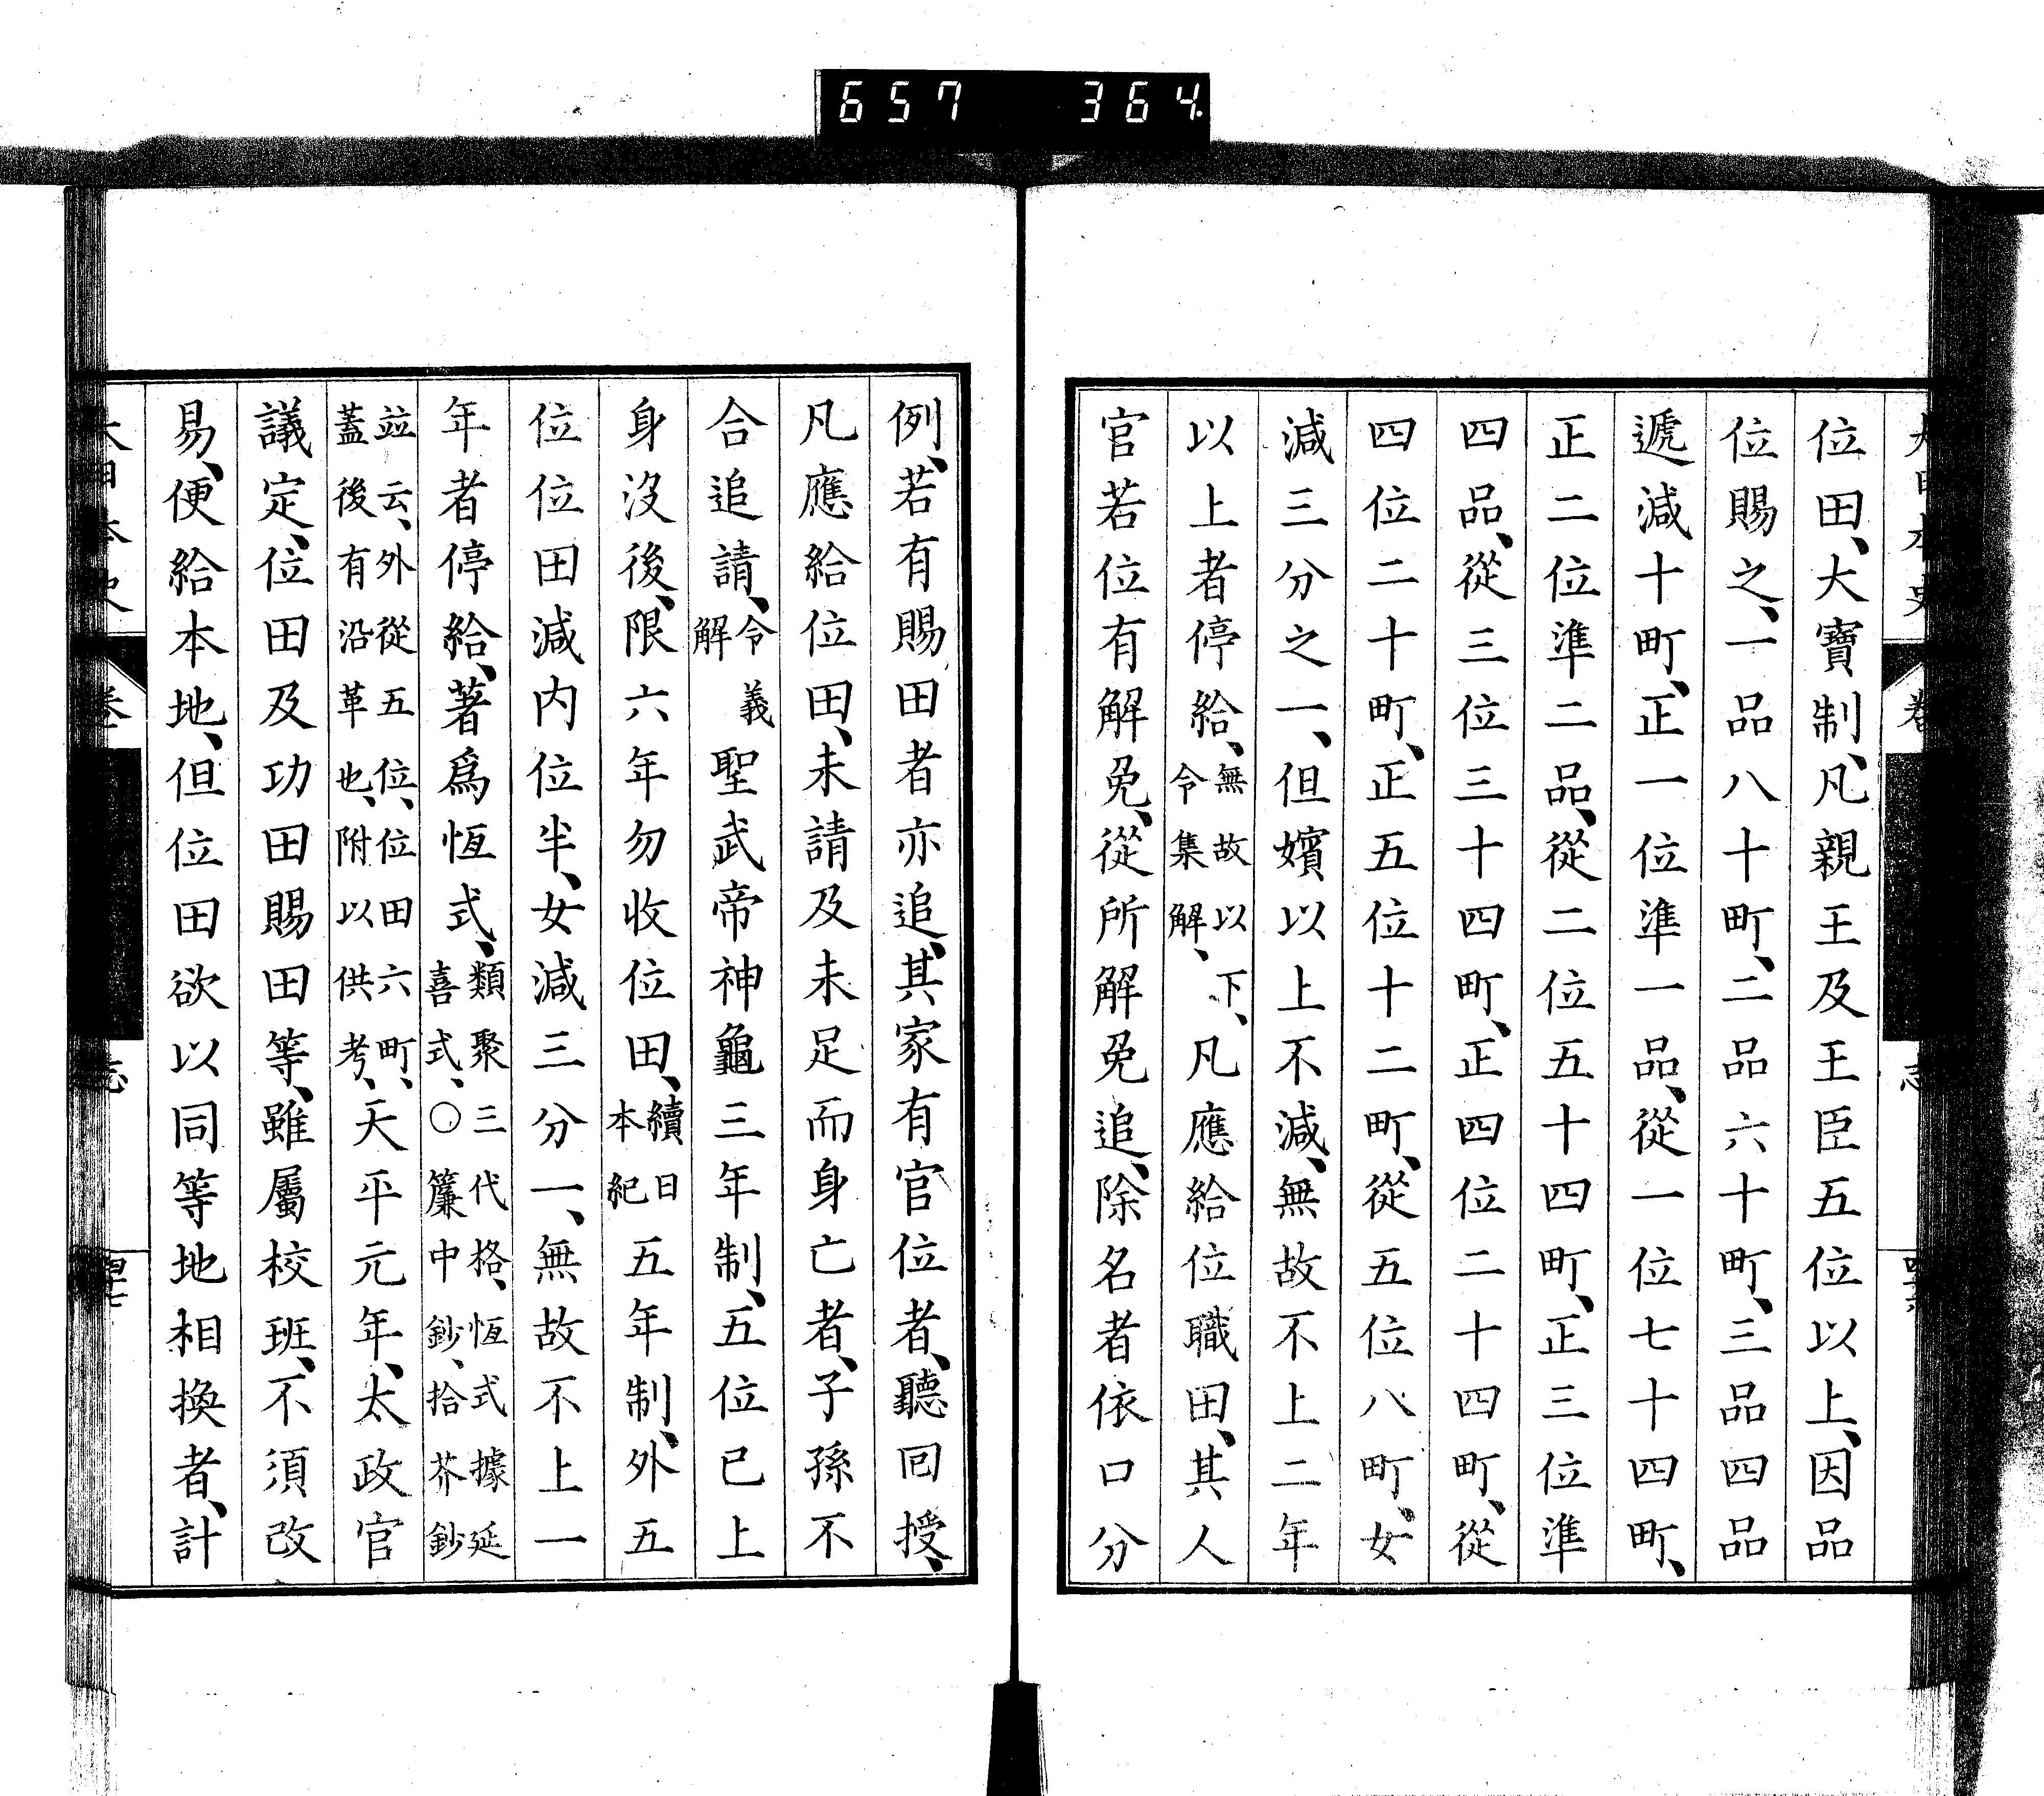 657 364
位田、大寶制、凡親王及王臣五位以上、因品
位賜之、一品八十町、二品六十町、三品四品
遞減十町、正一位準一品、從一位七十四町、
正二位準二品、從二位五十四町、正三位準
四品、從三位三十四町、正四位二十四町、從
四位二十町、正五位十二町、從五位八町、女
減三分之一、但嬪以上不減、無故不上二年
以上者停給、無故以下、令集解、凡應給位職田、其人
官若位有解免、從所解免追、除名者依口分
例、若有賜田者亦追、其家有官位者、聽回授、
凡應給位田、未請及未足而身亡者、子孫不
合追請、令義解聖武帝神龜三年制、五位已上
身沒後、限六年勿收位田、續日本紀五年制、外五
位位田減內位半、女減三分一、無故不上一
年者停給、著爲恆式、類聚三代格、恆式據延喜式、〇簾中鈔、拾芥鈔
竝云、外從五位、位田六町、蓋後有沿革也、附以供考、天平元年、太政官
議定、位田及功田賜田等、雖屬校班、不須改
易、便給本地、但位田欲以同等地相換者、計